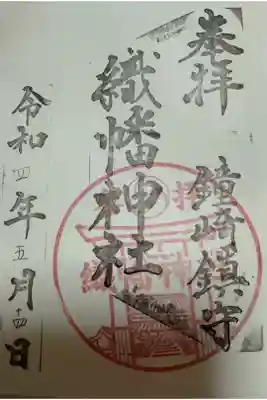 奉拝
鐘崎鎮守
織幡神社
令和四年五月十四日